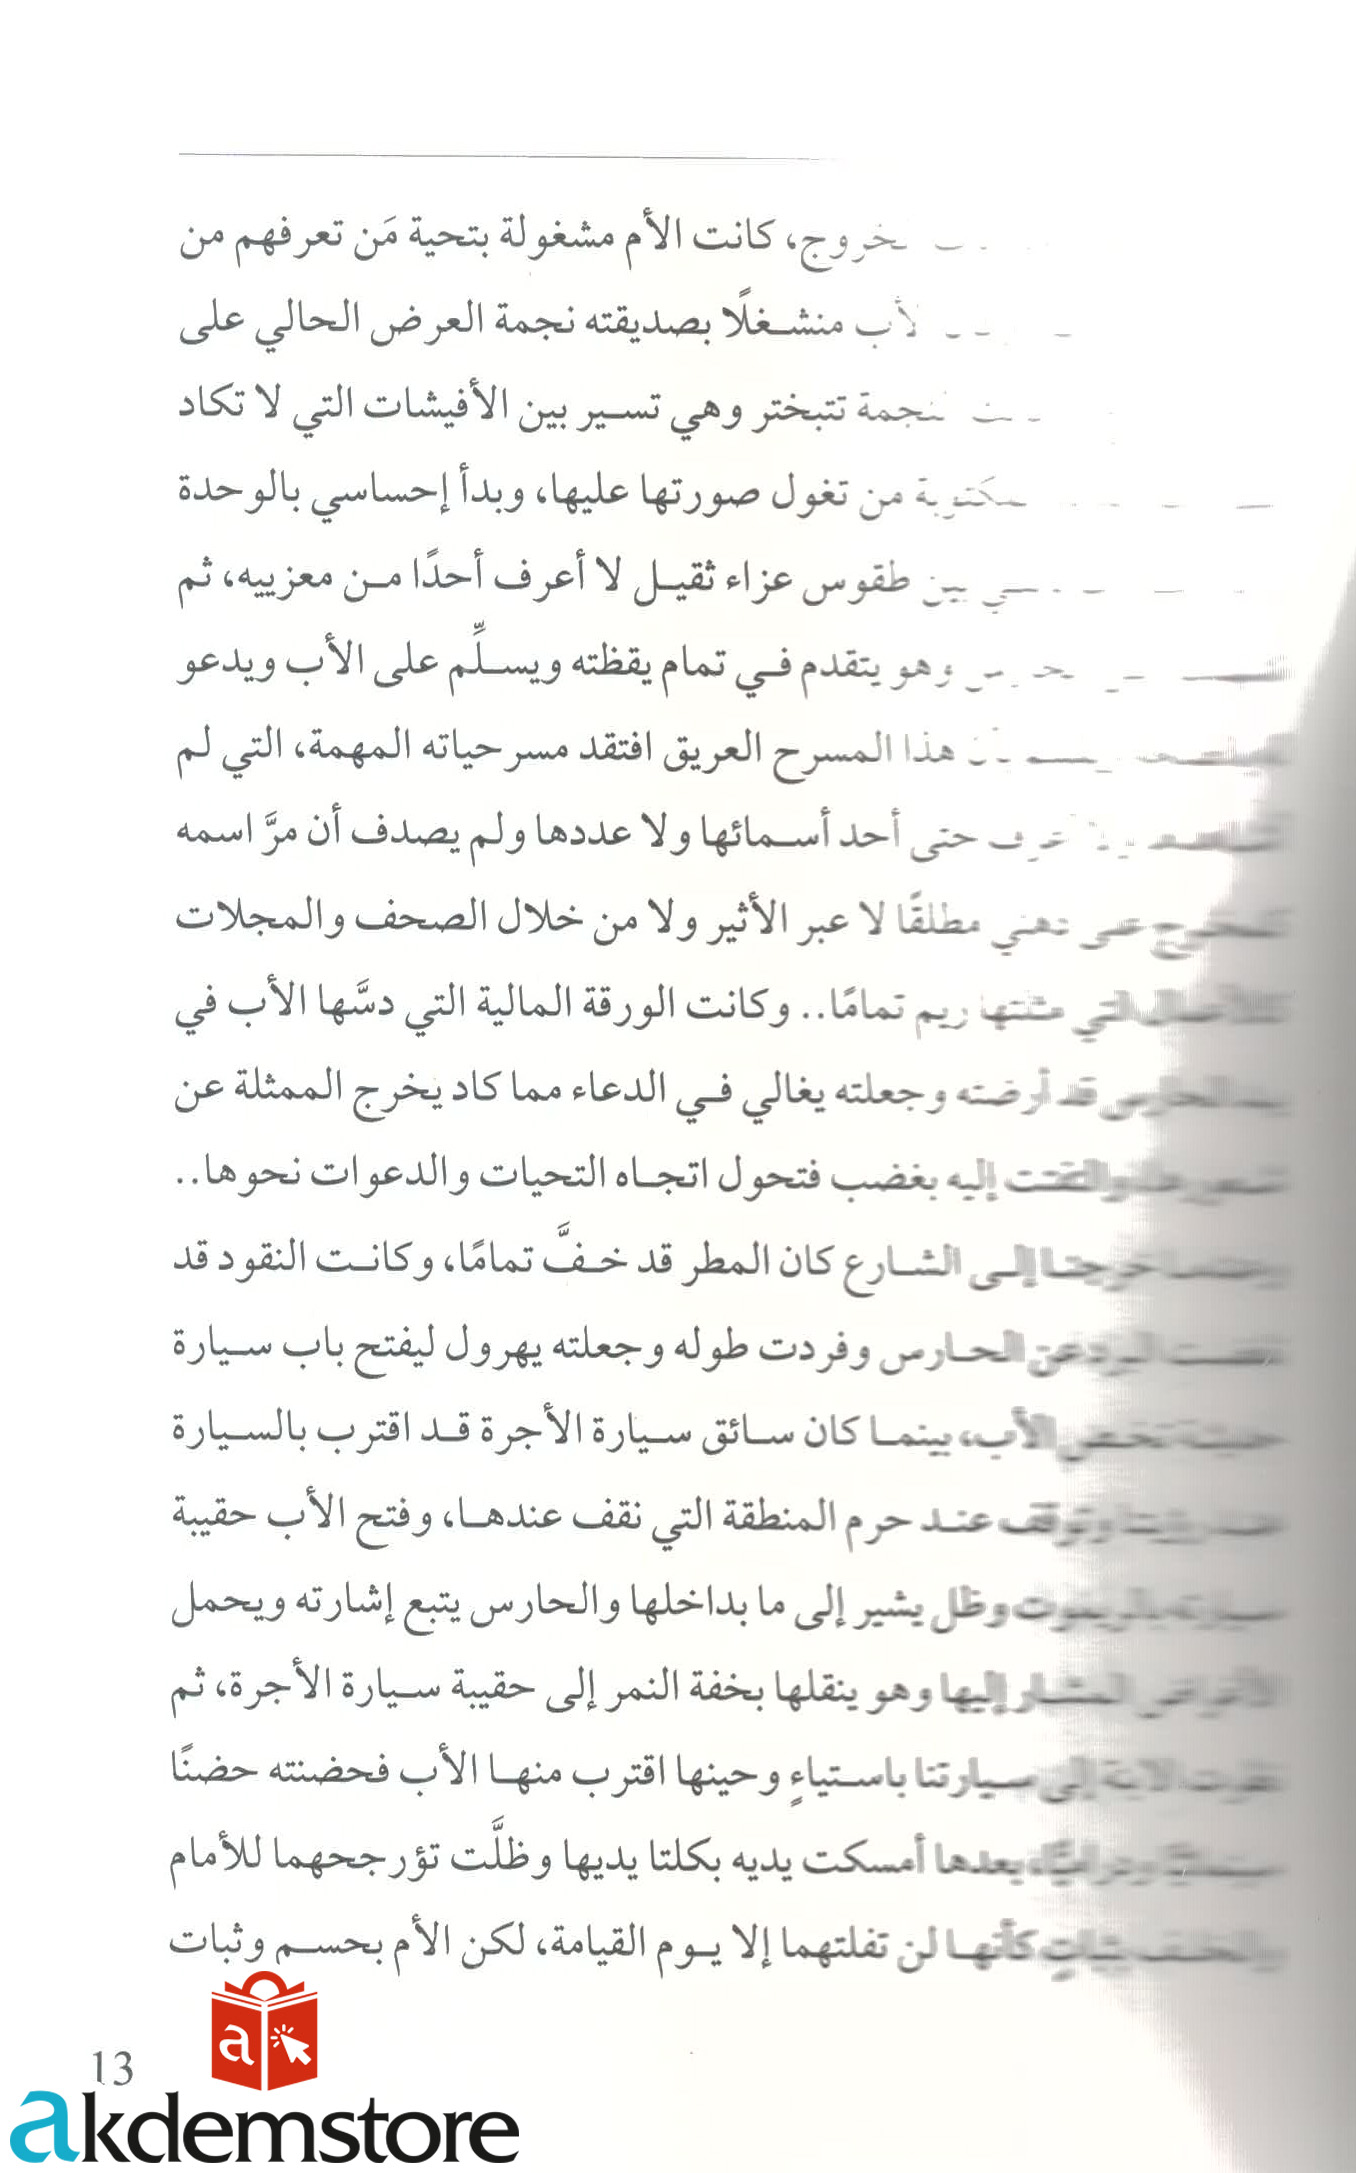 خروج، كانت الأم مشغولة بتحية مَن تعرفهم من
منشغلًا بصديقته نجمة العرض الحالي على
تتبختر وهي تسير بين الأفيشات التي لا تكاد
من تغول صورتها عليها، وبدأ إحساسي بالوحدة
بين طقوس عزاء ثقيل لا أعرف أحدًا من معزييه، ثم
وهو يتقدم في تمام يقظته ويسلِّم على الأب ويدعو
هذا المسرح العريق افتقد مسرحياته المهمة، التي لم
حتى أحد أسمائها ولا عددها ولم يصدف أن مرَّ اسمه
مطلقًا لا عبر الأثير ولا من خلال الصحف والمجلات
ريم تمامًا.. وكانت الورقة المالية التي دسَّها الأب في
قد أرضته وجعلته يغالي في الدعاء مما كاد يخرج الممثلة عن
والتفتت إليه بغضب فتحول اتجاه التحيات والدعوات نحوها..
خرجنا إلى الشارع كان المطر قد خفَّ تمامًا، وكانت النقود قد
البرد عن الحارس وفردت طوله وجعلته يهرول ليفتح باب سيارة
حديثة تخص الأب، بينما كان سائق سيارة الأجرة قد اقترب بالسيارة
وتوقف عند حرم المنطقة التي نقف عندها، وفتح الأب حقيبة
سيارته بالريموت وظل يشير إلى ما بداخلها والحارس يتبع إشارته ويحمل
الأغراض المشار إليها وهو ينقلها بخفة النمر إلى حقيبة سيارة الأجرة، ثم
نظرت الابنة إلى سيارتنا باستياءٍ وحينها اقترب منها الأب فحضنته حضنًا
سينمائيًّا ودراميًّا، بعدها أمسكت يديه بكلتا يديها وظلَّت تؤرجحهما للأمام
والخلف بثباتٍ كأنها لن تفلتهما إلا يوم القيامة، لكن الأم بحسم وثبات
13
akdemstore